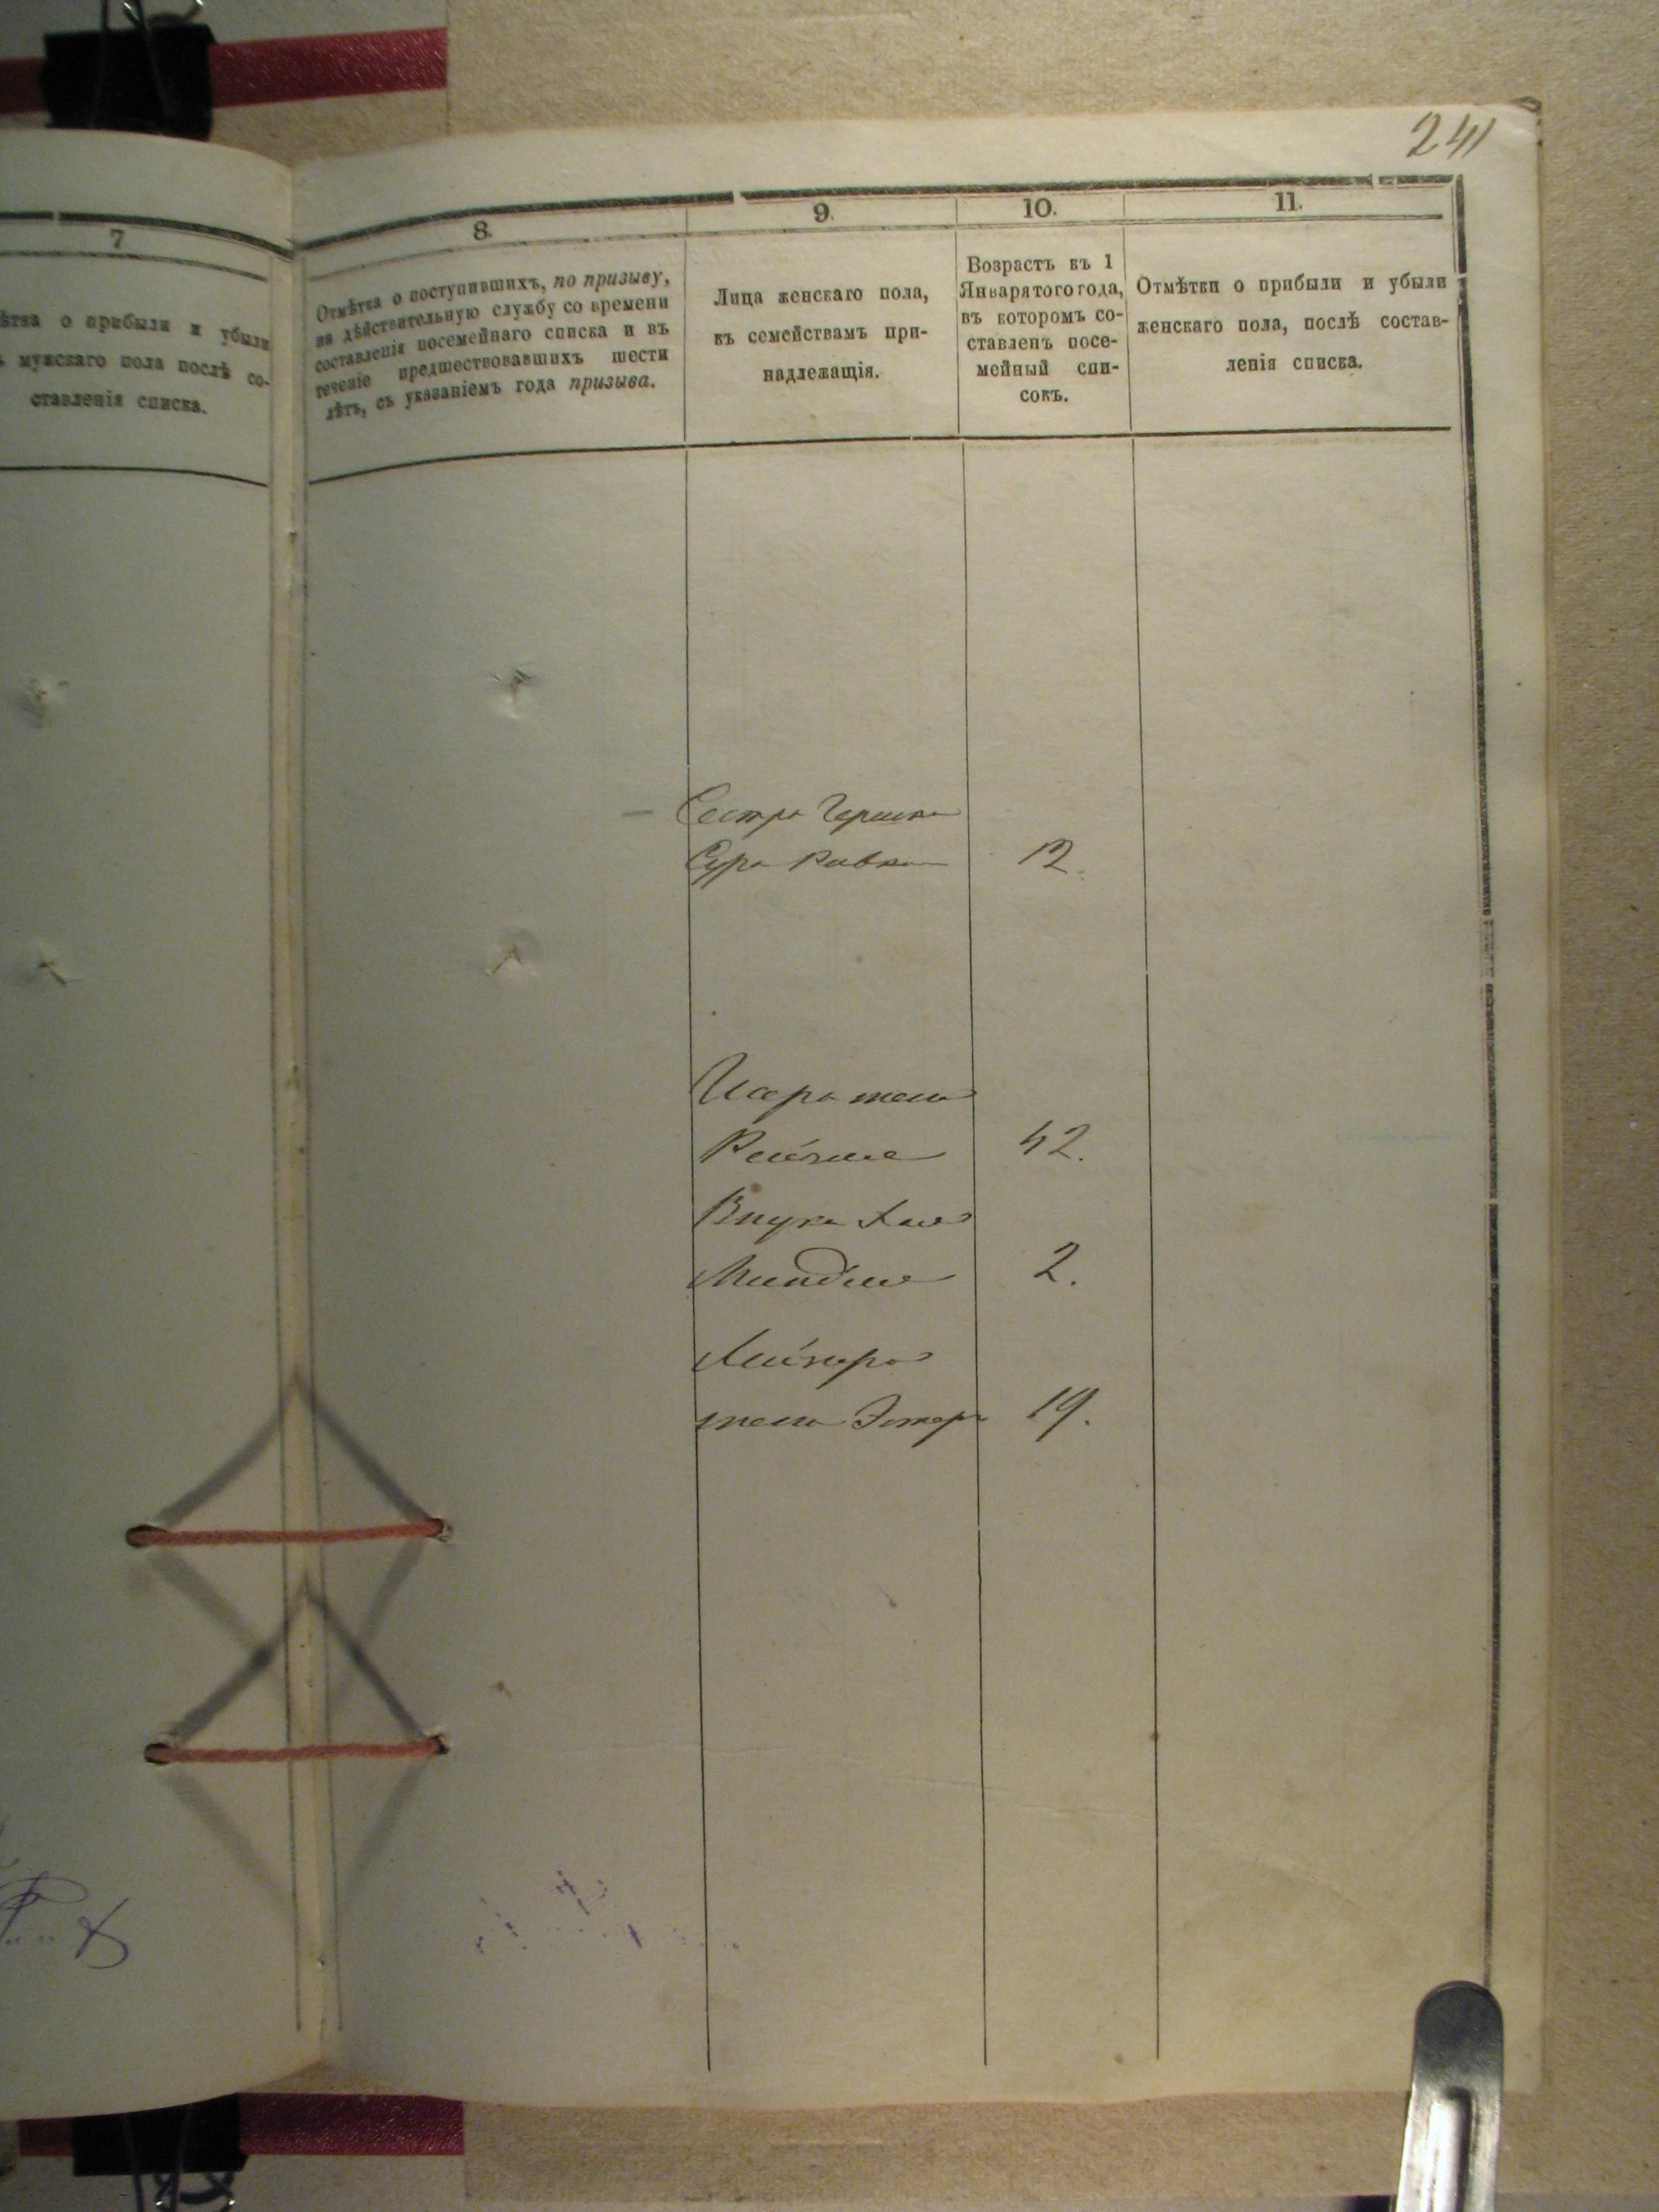 241
7
8.
9.
10.
11.
о прибыли и убыли
мужскаго пола послѣ со-
ставленія списка.
Отмѣтка о поступившихъ, по призыву,
на дѣйствительную службу со времени
составленія посемейнаго списка и въ
теченіе предшествовавшихъ шести
лѣтъ, съ указаніемъ года призыва.
Лица женскаго пола,
къ семействамъ при-
надлежащія.
Возрастъ къ 1
Января того года,
въ которомъ со-
ставленъ посе-
мейный спи-
сокъ.
Отмѣтки о прибыли и убыли
женскаго пола, послѣ состав-
ленія списка.
Сестра Гершка
Сура Ривка 12.
жена
Рейзля 42.
Внука Хая
Миндля 2.
Лейзера
жена Эстера 19.